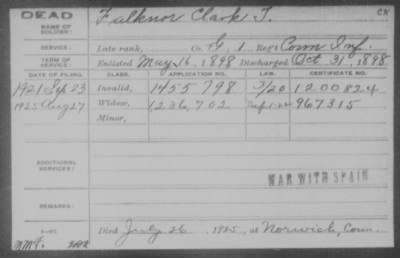 DEAD
CK
NAME OF SOLDIER:
Falknor Clark T.
SERVICE:
Late rank, Co. G. 1 Reg't Conn Inf.
TERM OF SERVICE:
Enlisted May 16, 1898 Discharged Oct 31, 1898
DATE OF FILING. CLASS. APPLICATION NO. LAW. CERTIFICATE NO.
1921 Sep 23 Invalid, 1455798 1200824
1925 Aug 27 Widow, 1,236,702 967315
Minor,
ADDITIONAL SERVICES:
WAR WITH SPAIN
REMARKS:
Died July 26 1925, at Norwich, Conn.